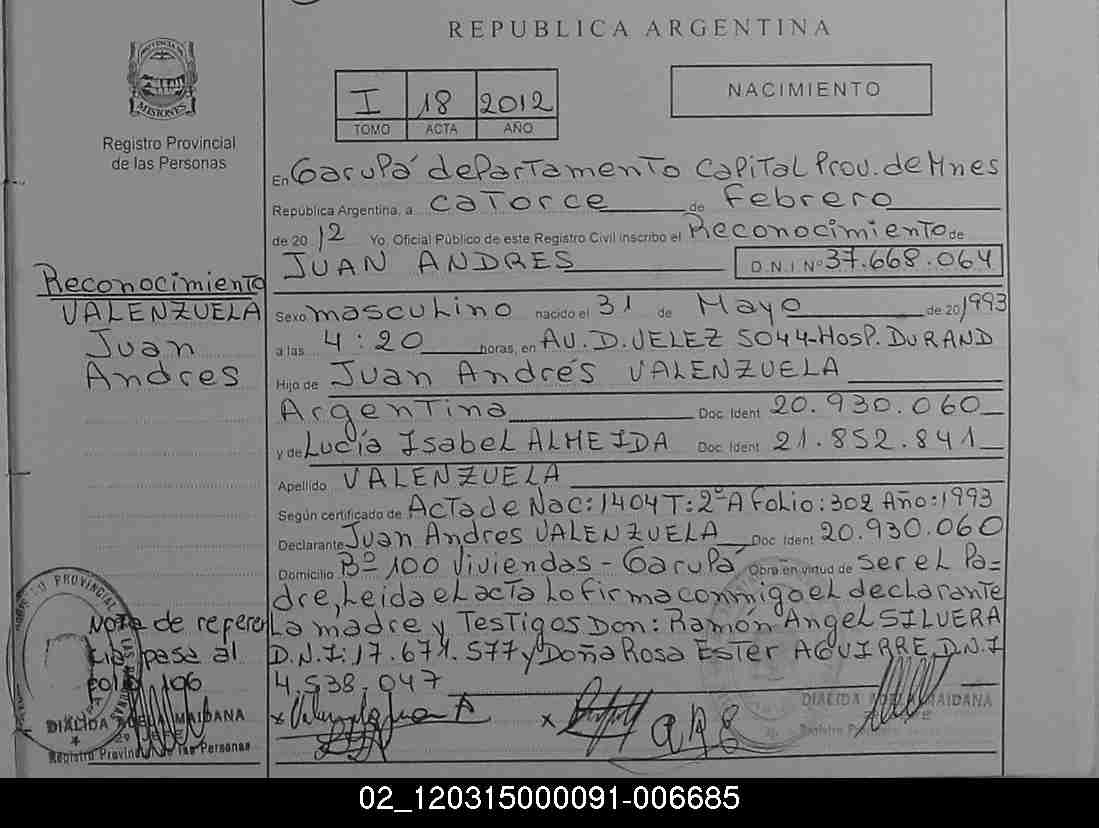 REPUBLICA ARGENTINA
PROVINCIA DE
MISIONES
Registro Provincial
de las Personas
I 18 2012
TOMO ACTA AÑO
NACIMIENTO
En Garupá departamento Capital Prov. de Mnes
República Argentina, a catorce de Febrero
de 20 12 Yo, Oficial Público de este Registro Civil inscribo el Reconocimiento de
JUAN ANDRES D.N.I Nº 37.668.064
Reconocimiento
VALENZUELA
Juan
Andres
Sexo masculino nacido el 31 de Mayo de 20/1993
a las 4:20 horas, en AU.D.VELEZ 5044-HOSP.DURAND
Hijo de Juan Andrés VALENZUELA
Argentina Doc. Ident 20.930.060
y de Lucía Isabel ALMEIDA Doc. Ident 21.852.841
Apellido VALENZUELA
Según certificado de Acta de Nac: 1404 T: 2ºA Folio: 302 Año: 1993
Declarante Juan Andres VALENZUELA Doc Ident 20.930.060
Domicilio Bº 100 Viviendas - Garupá Obra en virtud de ser el Pa=
dre, Leida el acta Lo firma conmigo el declarante
La madre y Testigos Don: Ramón Angel SILVERA
D.N.I: 17.671.577 y Doña Rosa Ester AGUIRRE D.N.I
4.538.047
Nota de referen
cia pasa al
folio 106
DIALIDA ADELA MAIDANA
2º JEFE
Registro Provincial de las Personas
DIALIDA ADELA MAIDANA
Registro
02_120315000091-006685